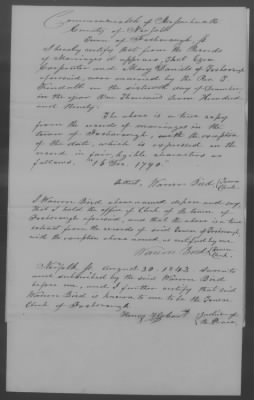 Commonwealth of Massachusetts
County of Norfolk
Town of Foxborough ss
I hereby certify that from the Records
of Marriages it appears, that Ezra
Carpenter and Mary Daniels of Foxborough
aforesaid, were married by the Rev. T.
Kendall on the sixteenth day of December,
in the year One Thousand Seven Hundred
and Ninety.
The above is a true copy
from the records of marriages in the
town of Foxborough, with the exception
of the date, which is expressed in the
record in fair, legible characters as
follows. "16 Dec. 1790."
Attest, Warren Bird, Town
Clerk.
I Warren Bird above named depose and say,
that I hold the office of Clerk of the town of
Foxborough aforesaid, and that the above is a true
extract from the records of said Town of Foxborough,
with the exception above named as certified by me.
Warren Bird, Town
Clerk.
Norfolk ss. August 30. 1843. Sworn to
and subscribed by the said Warren Bird
before me, and I further certify that said
Warren Bird is known to me to be the Town
Clerk of Foxborough.
Henry Justice of
the Peace